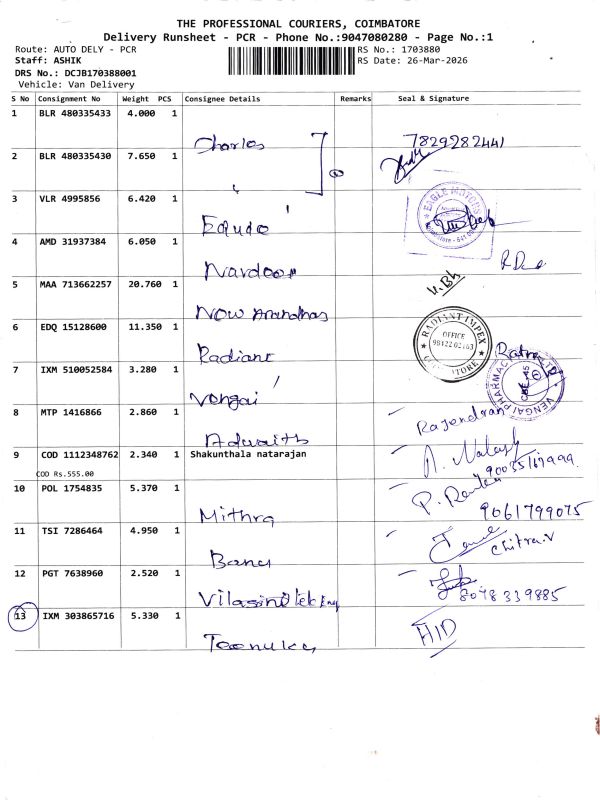 THE PROFESSIONAL COURIERS, COIMBATORE
Delivery Runsheet - PCR - Phone No.:9047080280 - Page No.:1
Route: AUTO DELY - PCR RS No.: 1703880
Staff: ASHIK RS Date: 26-Mar-2026
DRS No.: DCJB170388001
Vehicle: Van Delivery
S No Consignment No Weight PCS Consignee Details Remarks Seal & Signature
1 BLR 480335433 4.000 1
Charles 7829282441
2 BLR 480335430 7.650 1
3 VLR 4995856 6.420 1
EAGLE MOTORS
4 AMD 31937384 6.050 1
5 MAA 713662257 20.760 1
NOW
6 EDQ 15128600 11.350 1
RADIANT IMPEX
OFFICE
Radiant
7 IXM 510052584 3.280 1
VENGAI PHARMAC
Vengai
8 MTP 1416866 2.860 1
Rajendran
Adwaith
9 COD 1112348762 2.340 1 Shakunthala natarajan
COD Rs.555.00
10 POL 1754835 5.370 1
Mithra 9061799075
11 TSI 7286464 4.950 1
Chitra.V
12 PGT 7638960 2.520 1
8078339885
13 IXM 303865716 5.330 1